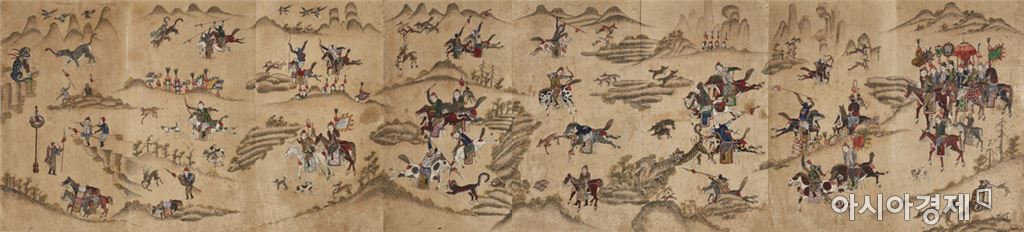 아시아경제